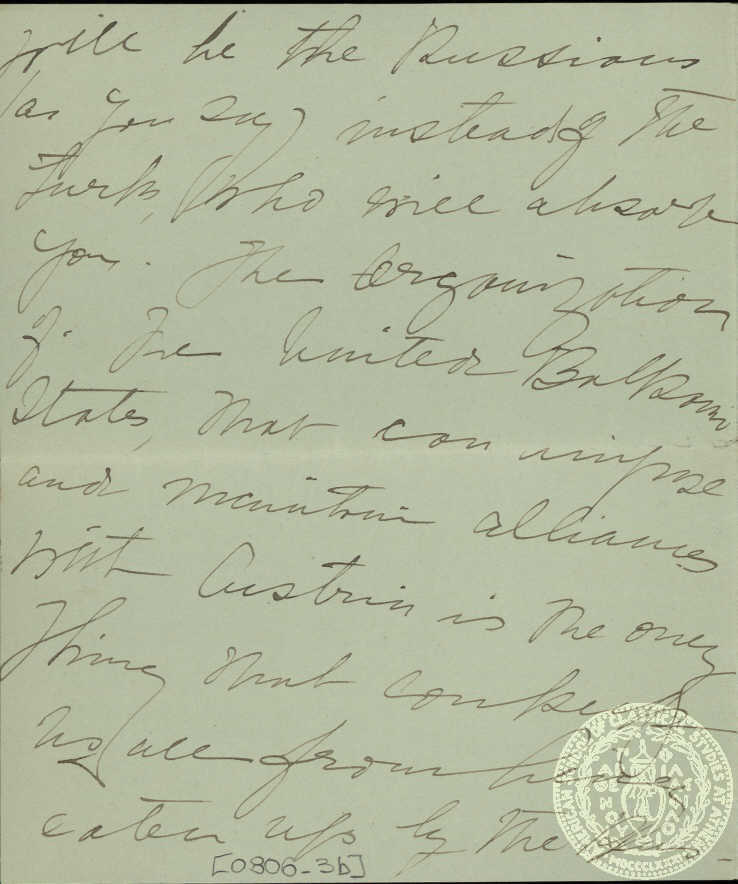 will be the Russians
(as you say) instead of the
Turks, who will absorb
you. The Organization
of the United Balkan
States, that can impose
and maintain alliances
with Austria is the only
thing that can keep
us all from being
eaten up by the Rus-
[0806-3b]
AMERICAN SCHOOL OF CLASSICAL STUDIES AT ATHENS
MDCCCLXXXI